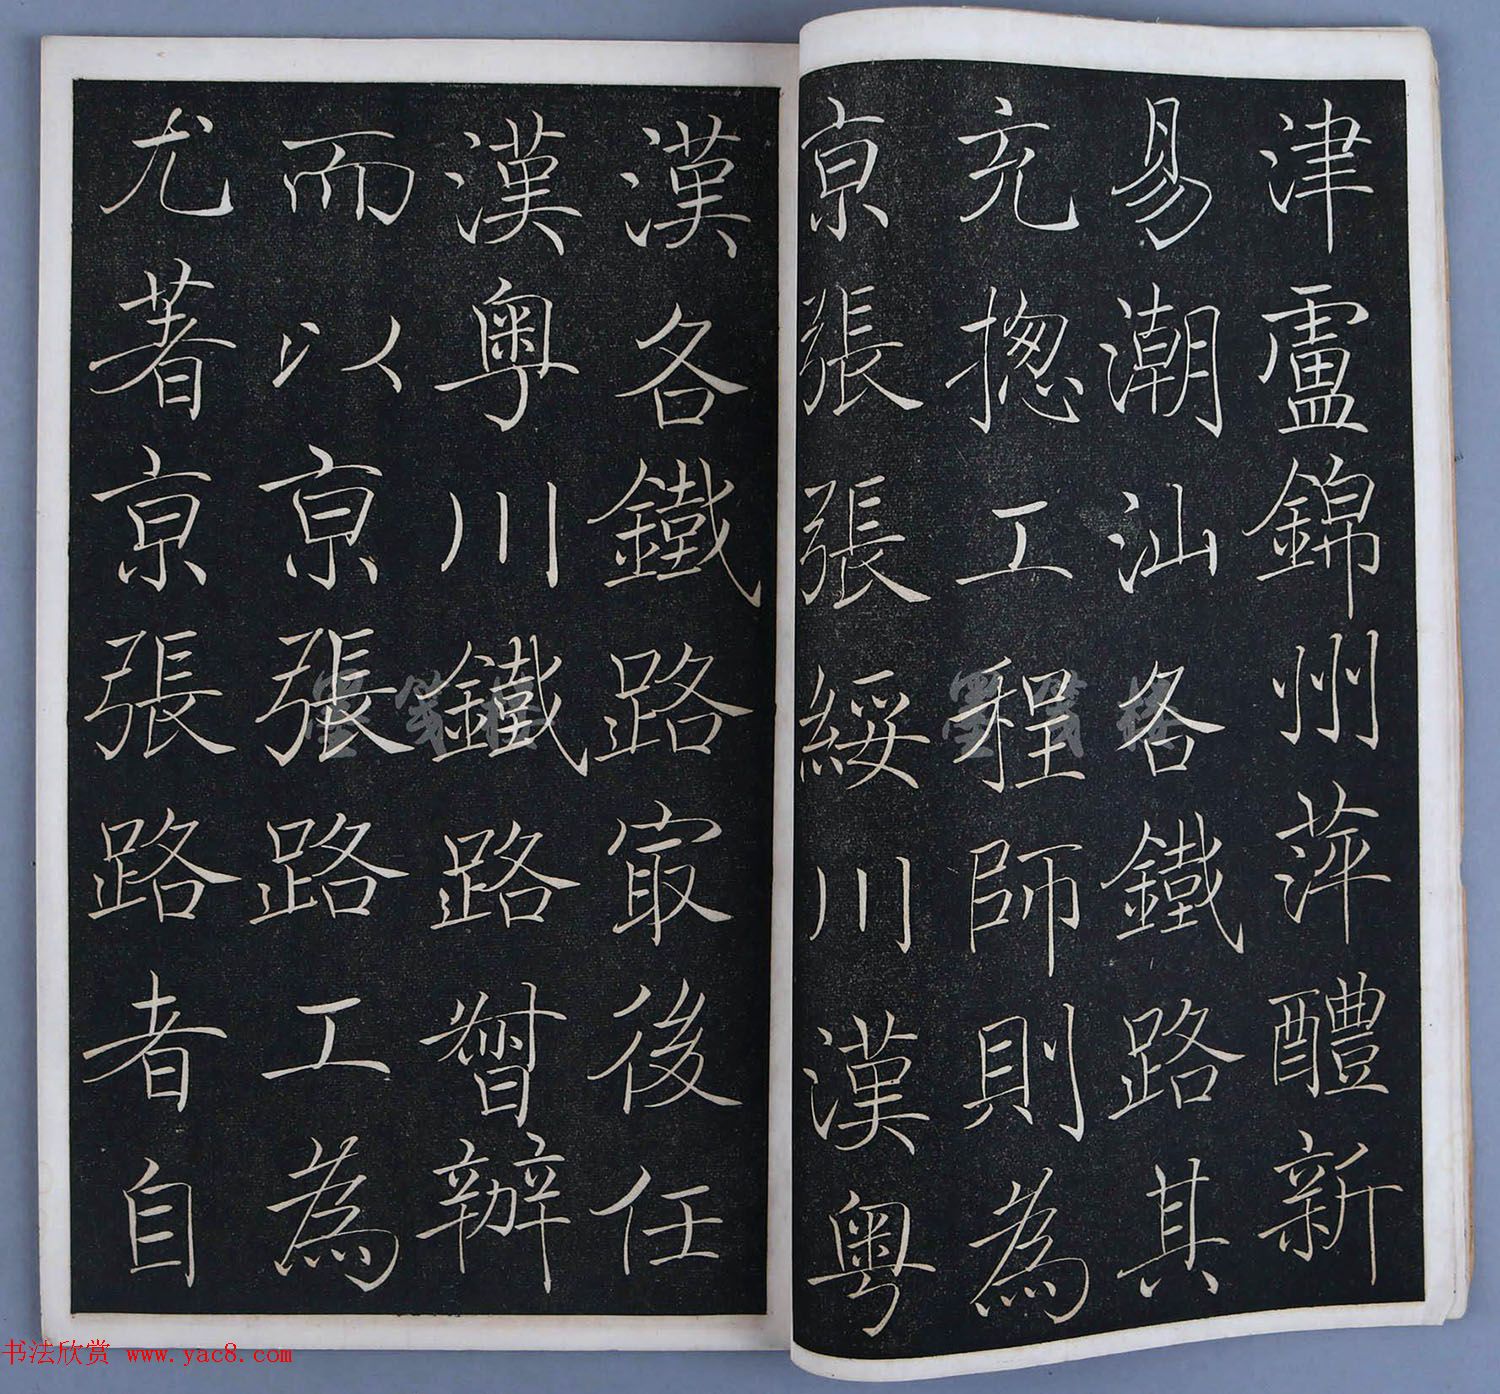 津盧錦州萍醴新
易潮汕各鐵路其
充揔工程師則為
京張張綏川漢粵
漢各鐵路冣後任
漢粵川鐵路督辦
而以京張路工為
尤著京張路者自
墨笺楼
墨笺楼
书法欣赏 www.yac8.com